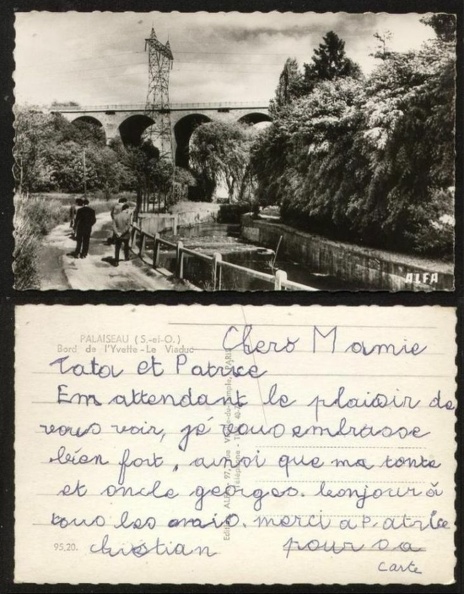 ALFA
PALAISEAU (S.-et-O.)
Bord de l'Yvette - Le Viaduc
Chers Mamie
Tata et Patrice
En attendant le plaisir de
vous voir, je vous embrasse
bien fort, ainsi que ma tante
et oncle georges. bonjour à
tous les amis. merci a Patrice
christian pour sa
carte
95,20.